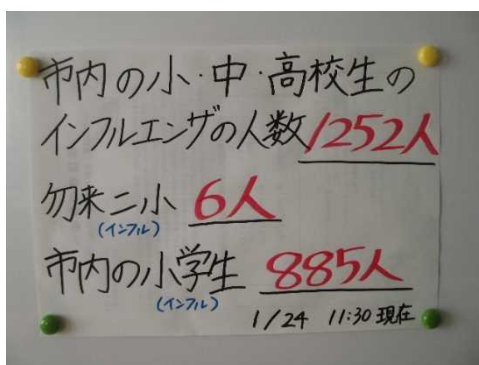 市内の小・中・高校生の
インフルエンザの人数1252人
勿来二小 6人
(インフル)
市内の小学生 885人
(インフル)
1/24 11:30 現在